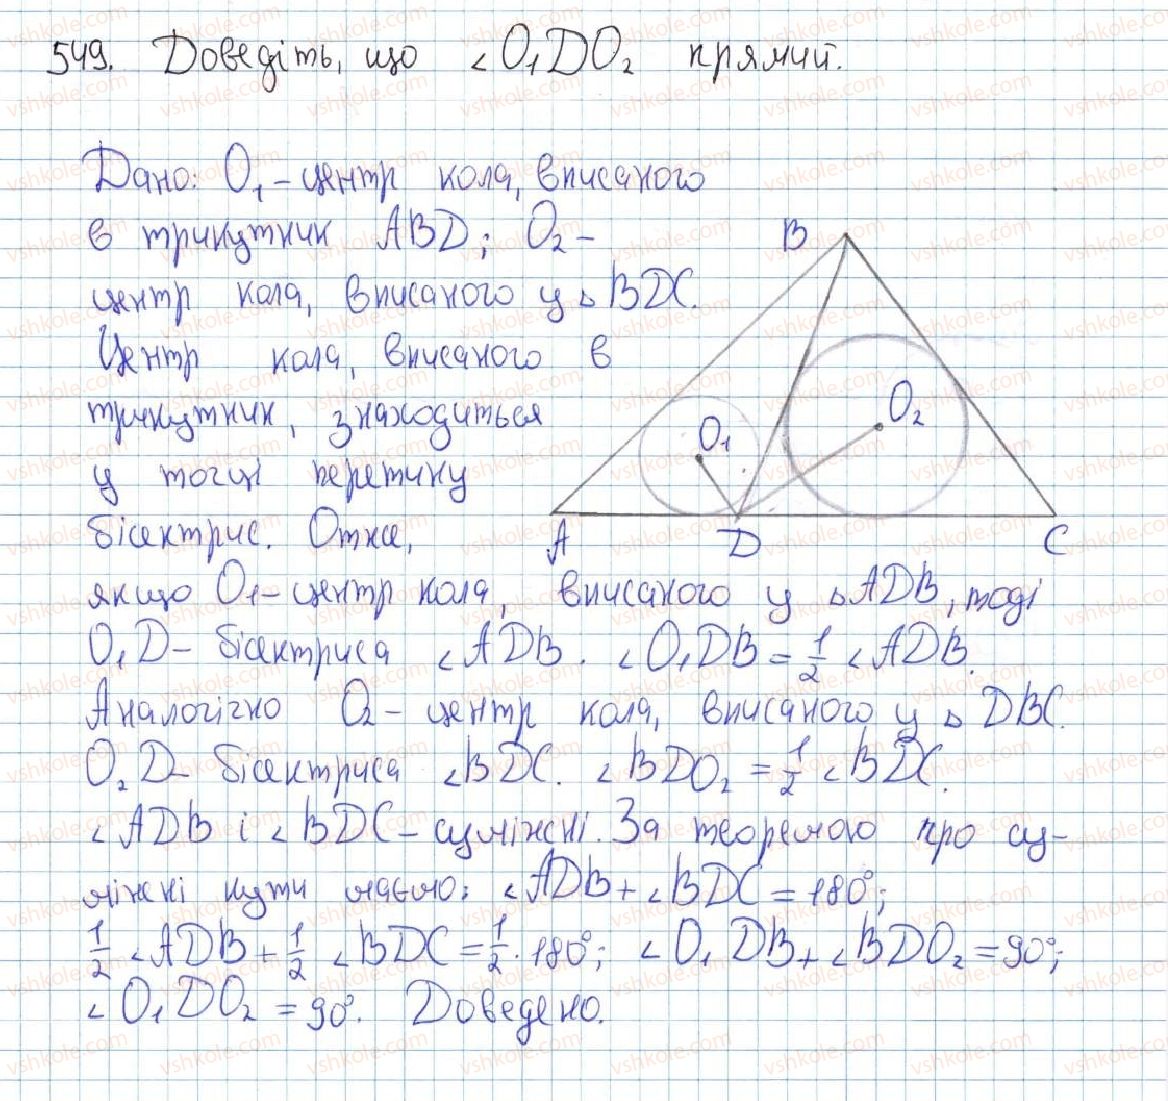 549. Доведіть, що ∠O₁DO₂ прямий.
Дано: O₁ – центр кола, вписаного
в трикутник ABD; O₂ –
центр кола, вписаного у △ BDC.
Центр кола, вписаного в
трикутник, знаходиться
у точці перетину
бісектрис. Отже,
B
O₁
O₂
A
D
C
якщо O₁ – центр кола, вписаного у △ADB, тоді
O₁D – бісектриса ∠ADB. ∠O₁DB = 1/2 ∠ADB.
Аналогічно O₂ – центр кола, вписаного у △ DBC.
O₂D – бісектриса ∠BDC. ∠BDO₂ = 1/2 ∠BDC.
∠ADB і ∠BDC – суміжні. За теоремою про су-
міжні кути маємо: ∠ADB + ∠BDC = 180°;
1/2 ∠ADB + 1/2 ∠BDC = 1/2 · 180°; ∠O₁DB + ∠BDO₂ = 90°;
∠O₁DO₂ = 90°. Доведено.
vshkole.com